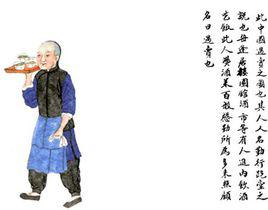 此中國過賣之圖也其人人名勤行跑堂之
説也每逢居樓園館酒市等有人進內飲酒
吃飯此人要酒菜百般慇勤所為多來照顧
名曰過賣也